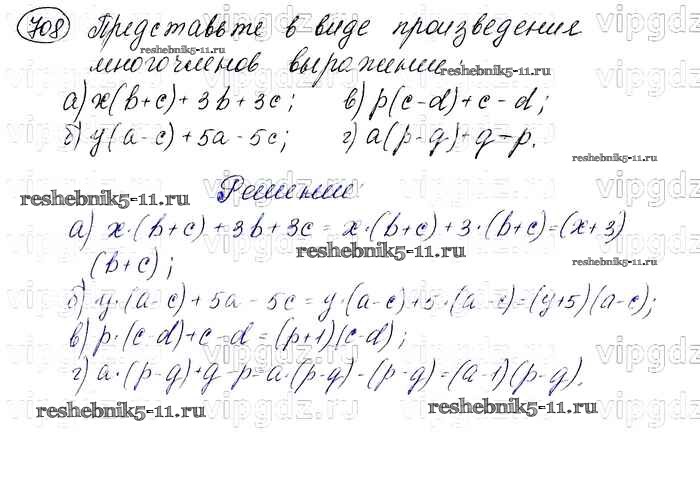 708 Представьте в виде произведения
многочленов выражение:
а) x(b+c)+3b+3c; в) p(c-d)+c-d;
б) y(a-c)+5a-5c; г) a(p-q)+q-p.
Решение:
а) x·(b+c)+3b+3c = x·(b+c)+3·(b+c)=(x+3)
(b+c);
б) y·(a-c)+5a-5c=y·(a-c)+5·(a-c)=(y+5)(a-c);
в) p·(c-d)+c-d=(p+1)(c-d);
г) a·(p-q)+q-p=a·(p-q)-(p-q)=(a-1)(p-q).
reshebnik5-11.ru
reshebnik5-11.ru
reshebnik5-11.ru
reshebnik5-11.ru
reshebnik5-11.ru
reshebnik5-11.ru
reshebnik5-11.ru
reshebnik5-11.ru